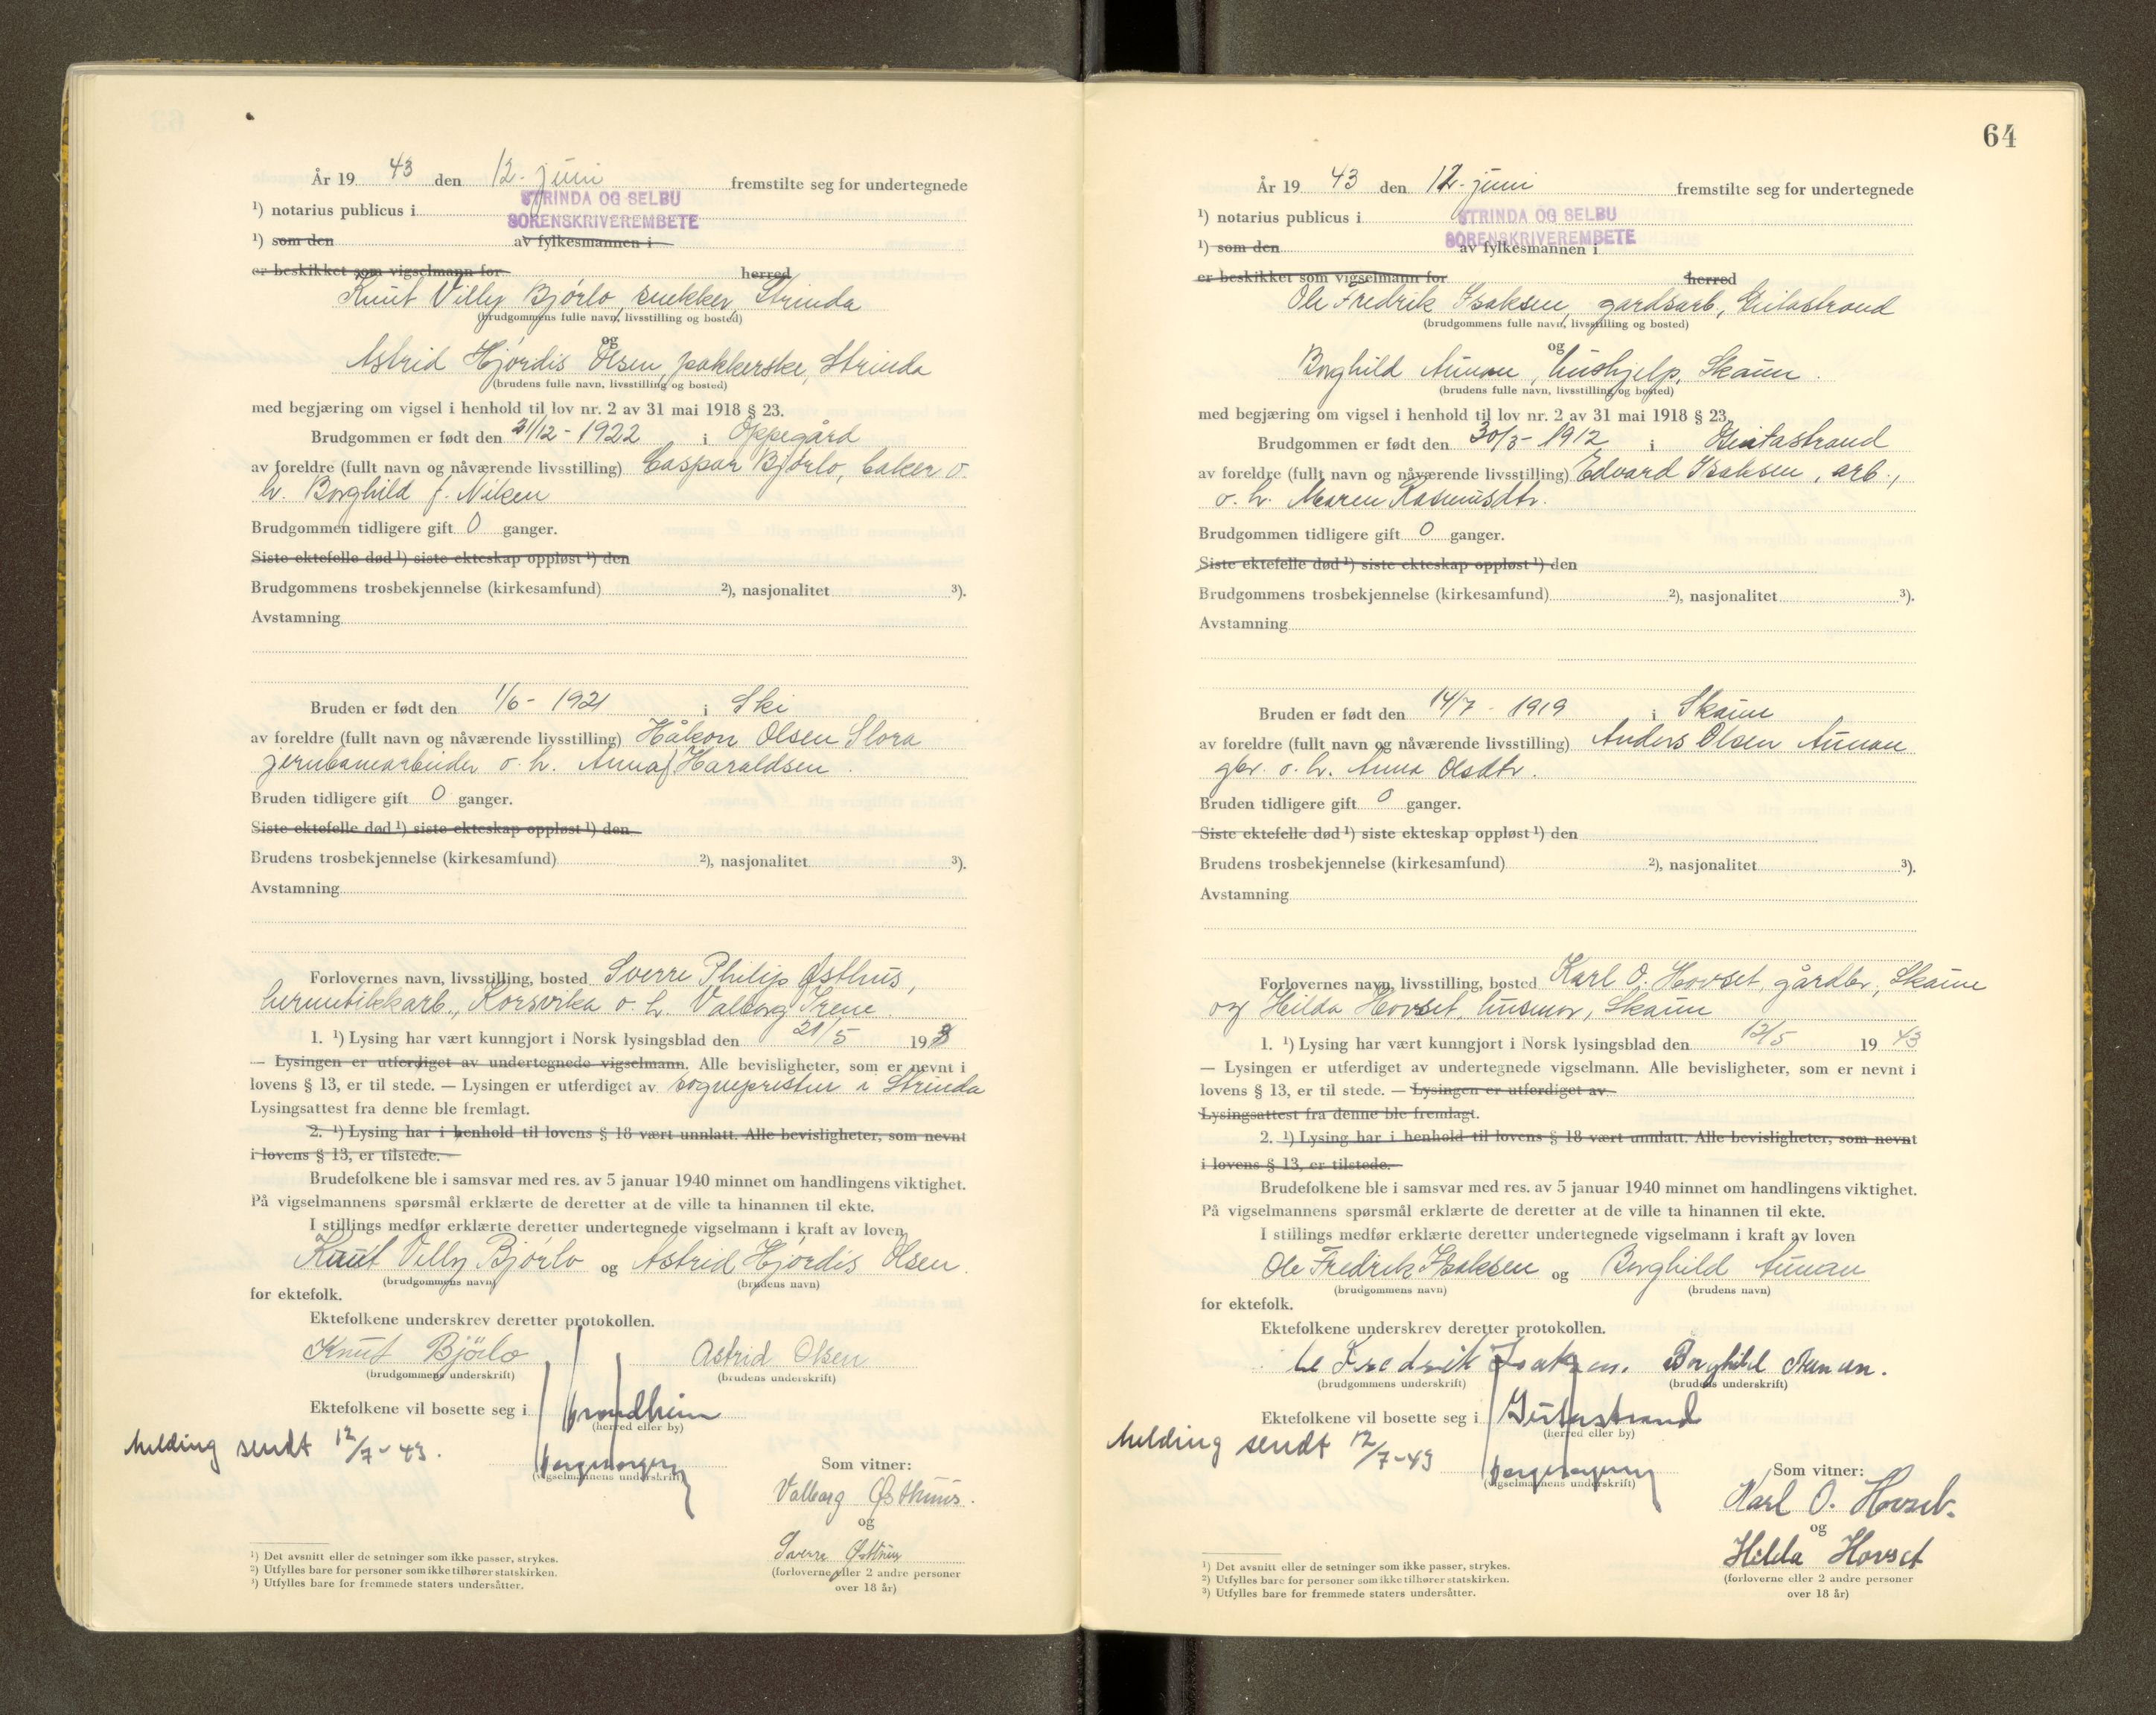 År 19 43 den 12. juni fremstilte seg for undertegnede
¹) notarius publicus i STRINDA OG SELBU
SORENSKRIVEREMBETE
¹) som den av fylkesmannen i
er beskikket som vigselmann for herred
Knut Villy Bjørlo, snekker, Strinda
(brudgommens fulle navn, livsstilling og bosted)
og
Astrid Hjørdis Olsen, pakkerske, Strinda
(brudens fulle navn, livsstilling og bosted)
med begjæring om vigsel i henhold til lov nr. 2 av 31 mai 1918 § 23.
Brudgommen er født den 31/12 - 1922 i Oppegård
av foreldre (fullt navn og nåværende livsstilling) Caspar Bjørlo, baker o.
h. Borghild f. Nilsen
Brudgommen tidligere gift 0 ganger.
Siste ektefelle død ¹) siste ekteskap oppløst ¹) den
Brudgommens trosbekjennelse (kirkesamfund) ²), nasjonalitet ³).
Avstamning
Bruden er født den 1/6 - 1921 i Ski
av foreldre (fullt navn og nåværende livsstilling) Håkon Olsen Slora
jernbanearbeider o. h. Anna f. Haraldsen.
Bruden tidligere gift 0 ganger.
Siste ektefelle død ¹) siste ekteskap oppløst ¹) den
Brudens trosbekjennelse (kirkesamfund) ²), nasjonalitet ³).
Avstamning
Forlovernes navn, livsstilling, bosted Sverre Philip Østhus,
hermetikkarb., Korsvika o. h. Valborg Irene.
1. ¹) Lysing har vært kunngjort i Norsk lysingsblad den 21/5 19
— Lysingen er utferdiget av undertegnede vigselmann. Alle bevisligheter, som er nevnt i
lovens § 13, er til stede. — Lysingen er utferdiget av sognepresten i Strinda
Lysingsattest fra denne ble fremlagt.
2. ¹) Lysing har i henhold til lovens § 18 vært unnlatt. Alle bevisligheter, som nevnt
i lovens § 13, er tilstede.
Brudefolkene ble i samsvar med res. av 5 januar 1940 minnet om handlingens viktighet.
På vigselmannens spørsmål erklærte de deretter at de ville ta hinannen til ekte.
I stillings medfør erklærte deretter undertegnede vigselmann i kraft av loven
Knut Villy Bjørlo og Astrid Hjørdis Olsen.
(brudgommens navn) (brudens navn)
for ektefolk.
Ektefolkene underskrev deretter protokollen.
Knut Bjørlo Astrid Olsen
(brudgommens underskrift) (brudens underskrift)
Ektefolkene vil bosette seg i Trondheim
(herred eller by)
Melding sendt 12/7-43.
(vigselmannens underskrift)
Som vitner:
Valborg Østhus.
og
Sverre Østhus
(forloverne eller 2 andre personer
over 18 år)
¹) Det avsnitt eller de setninger som ikke passer, strykes.
²) Utfylles bare for personer som ikke tilhører statskirken.
³) Utfylles bare for fremmede staters undersåtter.
64
År 19 43 den 12. juni fremstilte seg for undertegnede
¹) notarius publicus i STRINDA OG SELBU
SORENSKRIVEREMBETE
¹) som den av fylkesmannen i
er beskikket som vigselmann for herred
Ole Fredrik Isaksen, gardsarb, Geitastrand
(brudgommens fulle navn, livsstilling og bosted)
og
Borghild Aunan, hushjelp, Skaun.
(brudens fulle navn, livsstilling og bosted)
med begjæring om vigsel i henhold til lov nr. 2 av 31 mai 1918 § 23.
Brudgommen er født den 30/3 - 1912 i Geitastrand
av foreldre (fullt navn og nåværende livsstilling) Edvard Isaksen, arb.,
o. h. Maren Rasmusdtr.
Brudgommen tidligere gift 0 ganger.
Siste ektefelle død ¹) siste ekteskap oppløst ¹) den
Brudgommens trosbekjennelse (kirkesamfund) ²), nasjonalitet ³).
Avstamning
Bruden er født den 14/7 - 1919 i Skaun
av foreldre (fullt navn og nåværende livsstilling) Anders Olsen Aunan
gbr. o. h. Anna Olsdtr.
Bruden tidligere gift 0 ganger.
Siste ektefelle død ¹) siste ekteskap oppløst ¹) den
Brudens trosbekjennelse (kirkesamfund) ²), nasjonalitet ³).
Avstamning
Forlovernes navn, livsstilling, bosted Karl O. Hovset, gårdbr., Skaun
og Hilda Hovset, husmor, Skaun
1. ¹) Lysing har vært kunngjort i Norsk lysingsblad den 12/5 19 43
— Lysingen er utferdiget av undertegnede vigselmann. Alle bevisligheter, som er nevnt i
lovens § 13, er til stede. — Lysingen er utferdiget av
Lysingsattest fra denne ble fremlagt.
2. ¹) Lysing har i henhold til lovens § 18 vært unnlatt. Alle bevisligheter, som nevnt
i lovens § 13, er tilstede.
Brudefolkene ble i samsvar med res. av 5 januar 1940 minnet om handlingens viktighet.
På vigselmannens spørsmål erklærte de deretter at de ville ta hinannen til ekte.
I stillings medfør erklærte deretter undertegnede vigselmann i kraft av loven
Ole Fredrik Isaksen og Borghild Aunan
(brudgommens navn) (brudens navn)
for ektefolk.
Ektefolkene underskrev deretter protokollen.
Ole Fredrik Isaksen. Borghild Aunan.
(brudgommens underskrift) (brudens underskrift)
Ektefolkene vil bosette seg i Geitastrand
(herred eller by)
Melding sendt 12/7-43
(vigselmannens underskrift)
Som vitner:
Karl O. Hovset.
og
Hilda Hovset
(forloverne eller 2 andre personer
over 18 år)
¹) Det avsnitt eller de setninger som ikke passer, strykes.
²) Utfylles bare for personer som ikke tilhører statskirken.
³) Utfylles bare for fremmede staters undersåtter.